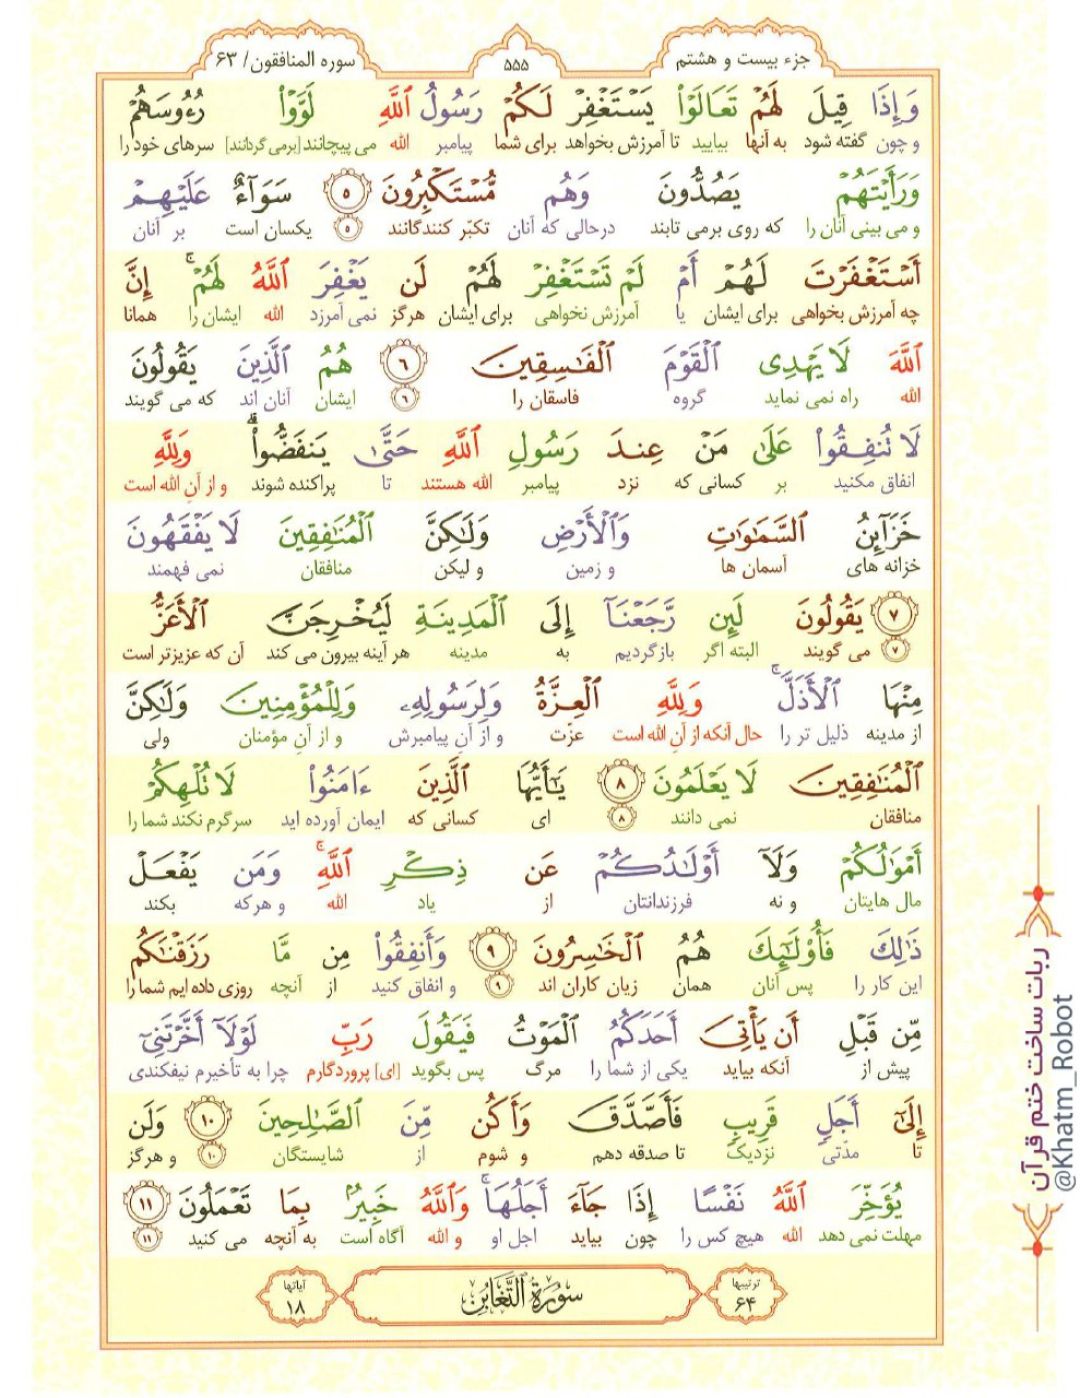 جزء بیست و هشتم
۵۵۵
سوره المنافقون/ ۶۳
وَإِذَا قِيلَ لَهُمْ تَعَالَوْا۟ يَسْتَغْفِرْ لَكُمْ رَسُولُ ٱللَّهِ لَوَّوْا۟ رُءُوسَهُمْ
و چون گفته شود به آنها بیایید تا آمرزش بخواهد برای شما پیامبر الله می پیچانند[برمی گردانند] سرهای خود را
وَرَأَيْتَهُمْ يَصُدُّونَ وَهُم مُّسْتَكْبِرُونَ ۵ سَوَآءٌ عَلَيْهِمْ
و می بینی آنان را که روی برمی تابند درحالی که آنان تکبّر کنندگانند ۵ یکسان است بر آنان
أَسْتَغْفَرْتَ لَهُمْ أَمْ لَمْ تَسْتَغْفِرْ لَهُمْ لَن يَغْفِرَ ٱللَّهُ لَهُمْ ۚ إِنَّ
چه آمرزش بخواهی برای ایشان یا آمرزش نخواهی برای ایشان هرگز نمی آمرزد الله ایشان را همانا
ٱللَّهَ لَا يَهْدِى ٱلْقَوْمَ ٱلْفَـٰسِقِينَ ۶ هُمُ ٱلَّذِينَ يَقُولُونَ
الله راه نمی نماید گروه فاسقان را ۶ ایشان آنان اند که می گویند
لَا تُنفِقُوا۟ عَلَىٰ مَنْ عِندَ رَسُولِ ٱللَّهِ حَتَّىٰ يَنفَضُّوا۟ ۗ وَلِلَّهِ
انفاق مکنید بر کسانی که نزد پیامبر الله هستند تا پراکنده شوند و از آنِ الله است
خَزَآئِنُ ٱلسَّمَـٰوَٰتِ وَٱلْأَرْضِ وَلَـٰكِنَّ ٱلْمُنَـٰفِقِينَ لَا يَفْقَهُونَ
خزانه های آسمان ها و زمین و لیکن منافقان نمی فهمند
۷ يَقُولُونَ لَئِن رَّجَعْنَآ إِلَى ٱلْمَدِينَةِ لَيُخْرِجَنَّ ٱلْأَعَزُّ
۷ می گویند البته اگر بازگردیم به مدینه هر آینه بیرون می کند آن که عزیزتر است
مِنْهَا ٱلْأَذَلَّ ۚ وَلِلَّهِ ٱلْعِزَّةُ وَلِرَسُولِهِۦ وَلِلْمُؤْمِنِينَ وَلَـٰكِنَّ
از مدینه ذلیل تر را حال آنکه از آنِ الله است عزّت و از آنِ پیامبرش و از آنِ مؤمنان ولی
ٱلْمُنَـٰفِقِينَ لَا يَعْلَمُونَ ۸ يَـٰٓأَيُّهَا ٱلَّذِينَ ءَامَنُوا۟ لَا تُلْهِكُمْ
منافقان نمی دانند ۸ ای کسانی که ایمان آورده اید سرگرم نکند شما را
أَمْوَٰلُكُمْ وَلَآ أَوْلَـٰدُكُمْ عَن ذِكْرِ ٱللَّهِ ۚ وَمَن يَفْعَلْ
مال هایتان و نه فرزندانتان از یاد الله و هرکه بکند
ذَٰلِكَ فَأُو۟لَـٰٓئِكَ هُمُ ٱلْخَـٰسِرُونَ ۹ وَأَنفِقُوا۟ مِن مَّا رَزَقْنَـٰكُم
این کار را پس آنان همان زیان کاران اند ۹ و انفاق کنید از آنچه روزی داده ایم شما را
مِّن قَبْلِ أَن يَأْتِىَ أَحَدَكُمُ ٱلْمَوْتُ فَيَقُولَ رَبِّ لَوْلَآ أَخَّرْتَنِىٓ
پیش از آنکه بیاید یکی از شما را مرگ پس بگوید [ای] پروردگارم چرا به تأخیرم نیفکندی
إِلَىٰٓ أَجَلٍ قَرِيبٍ فَأَصَّدَّقَ وَأَكُن مِّنَ ٱلصَّـٰلِحِينَ ۱۰ وَلَن
تا مدّتی نزدیک تا صدقه دهم و شوم از شایستگان ۱۰ و هرگز
يُؤَخِّرَ ٱللَّهُ نَفْسًا إِذَا جَآءَ أَجَلُهَا ۚ وَٱللَّهُ خَبِيرٌۢ بِمَا تَعْمَلُونَ ۱۱
مهلت نمی دهد الله هیچ کس را چون بیاید اجل او و الله آگاه است به آنچه می کنید ۱۱
ترتیبها ۶۴
سُورَةُ ٱلتَّغَابُنِ
آیاتها ۱۸
ربات ساخت ختم قرآن
@Khatm_Robot